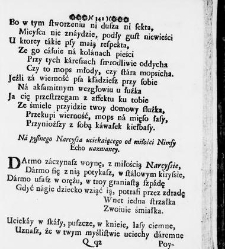 341
Bo w tym stworzeniu ni dusza ni sekta,
Mieysca nie znáydzie, podły gust niewieści
U ktorey tákie psy maią respekta,
Ze go cáłuie ná kolánach pieści
Przy tych káresach smrodliwie oddycha
Czy to mops młody, czy stára mopsicha.
Jeśli zá wierność psá kłádziesz przy sobie
Ná aksamitnym wezgłowiu u łużka
Ja cię przestrzegam z affektu ku tobie
Ze śmiele przydzie twoy domowy służka,
Przekupi wierność, mops ná mięso łasy,
Przyniozszy z sobą káwałek kiełbasy.
Ná pysznego Narcyssa uciekaiącego od miłości Nimfy
Echo nazwaney.
DArmo záczynasz woynę, z miłością Narcyssie,
Dármo się z nią potykasz, w stálowym kirysie,
Dármo ufasz w orężu, w troy graniastą szpádę
Gdyż nágie dziecko wziąć ią, potrafi przez zdrádę
Wnet iedna strzałka
Zwoiuie śmiałka.
Uciekáy w skáły, puszcze, w knieie, lásy ciemne,
Uznasz, że w twym myślistwie uciechy dáremne
Q q2 Poy-